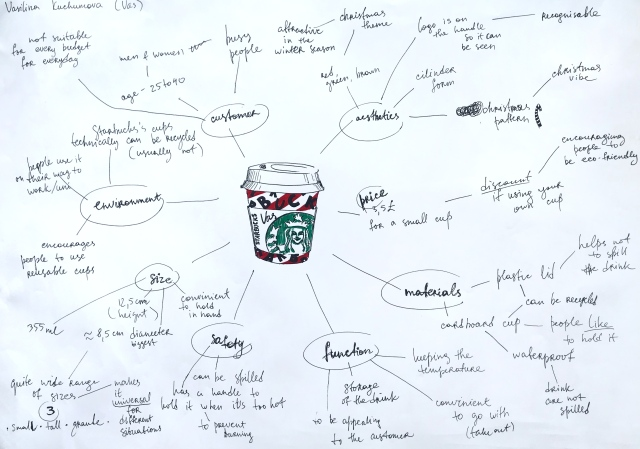 Vasilina Kuchumova (Vas)
not suitable
for every budget
for everyday
men & women
age - 25to40
busy
people
customer
attractive
in the
winter season
christmas
theme
red,
green, brown
logo is on
the handle
so it can
be seen
recognisable
cylinder
form
aesthetics
christmas
pattern
christmas
vibe
Starbucks's cups
technically can be recycled
(usually not)
people use it
on their way to
work/uni
environment
encourages
people to use
reusable cups
price
3,5£
for a small cup
discount
if using your
own cup
encouraging
people to
be eco-friendly
BUC
Vas
STARBUCKS
size
12,5cm
(height)
convenient
to hold
in hand
355 ml
≈ 8,5 cm diameter
biggest
quite wide range
of sizes
3
· small · tall · grande ·
makes
it
universal
for
different
situations
safety
can be spilled
has a handle to
hold it when it's too hot
to prevent
burning
function
keeping the
temperature
storage
of the drink
to be appealing
to the customer
convenient
to go with
(take out)
materials
plastic lid
helps not
to spill
the drink
can be recycled
cardboard cup
people like
to hold it
waterproof
drink
are not
spilled